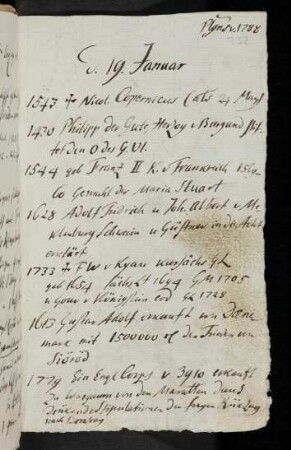 d. 19. Januar
1543 ✝ Nicol. Copernicus (als 24 May)
1430 Philipp der Gute Herzog v Burgund stif
tet den O des G. Vl.
1544 geb Franz II K. v Frankreich
Gemahl der Maria Stuart
1628 Adolf Fridrich u Joh. Albert v Me
klenburg Schwerin u Güstrow in die Acht
erklärt
1733 ✝ F W v Kyau Kursächs GL
geb 1654 1694 GM 1705
u Gouv v Königstein
1613 Gustav Adolf erkauft von Däne
mark mit 1500000 den Frieden von
Siöröd
1779 Ein Engl Corps v 3910
von den Maratten durch
Drükende Stipulationen den freyen Rückzug
nach Bombay